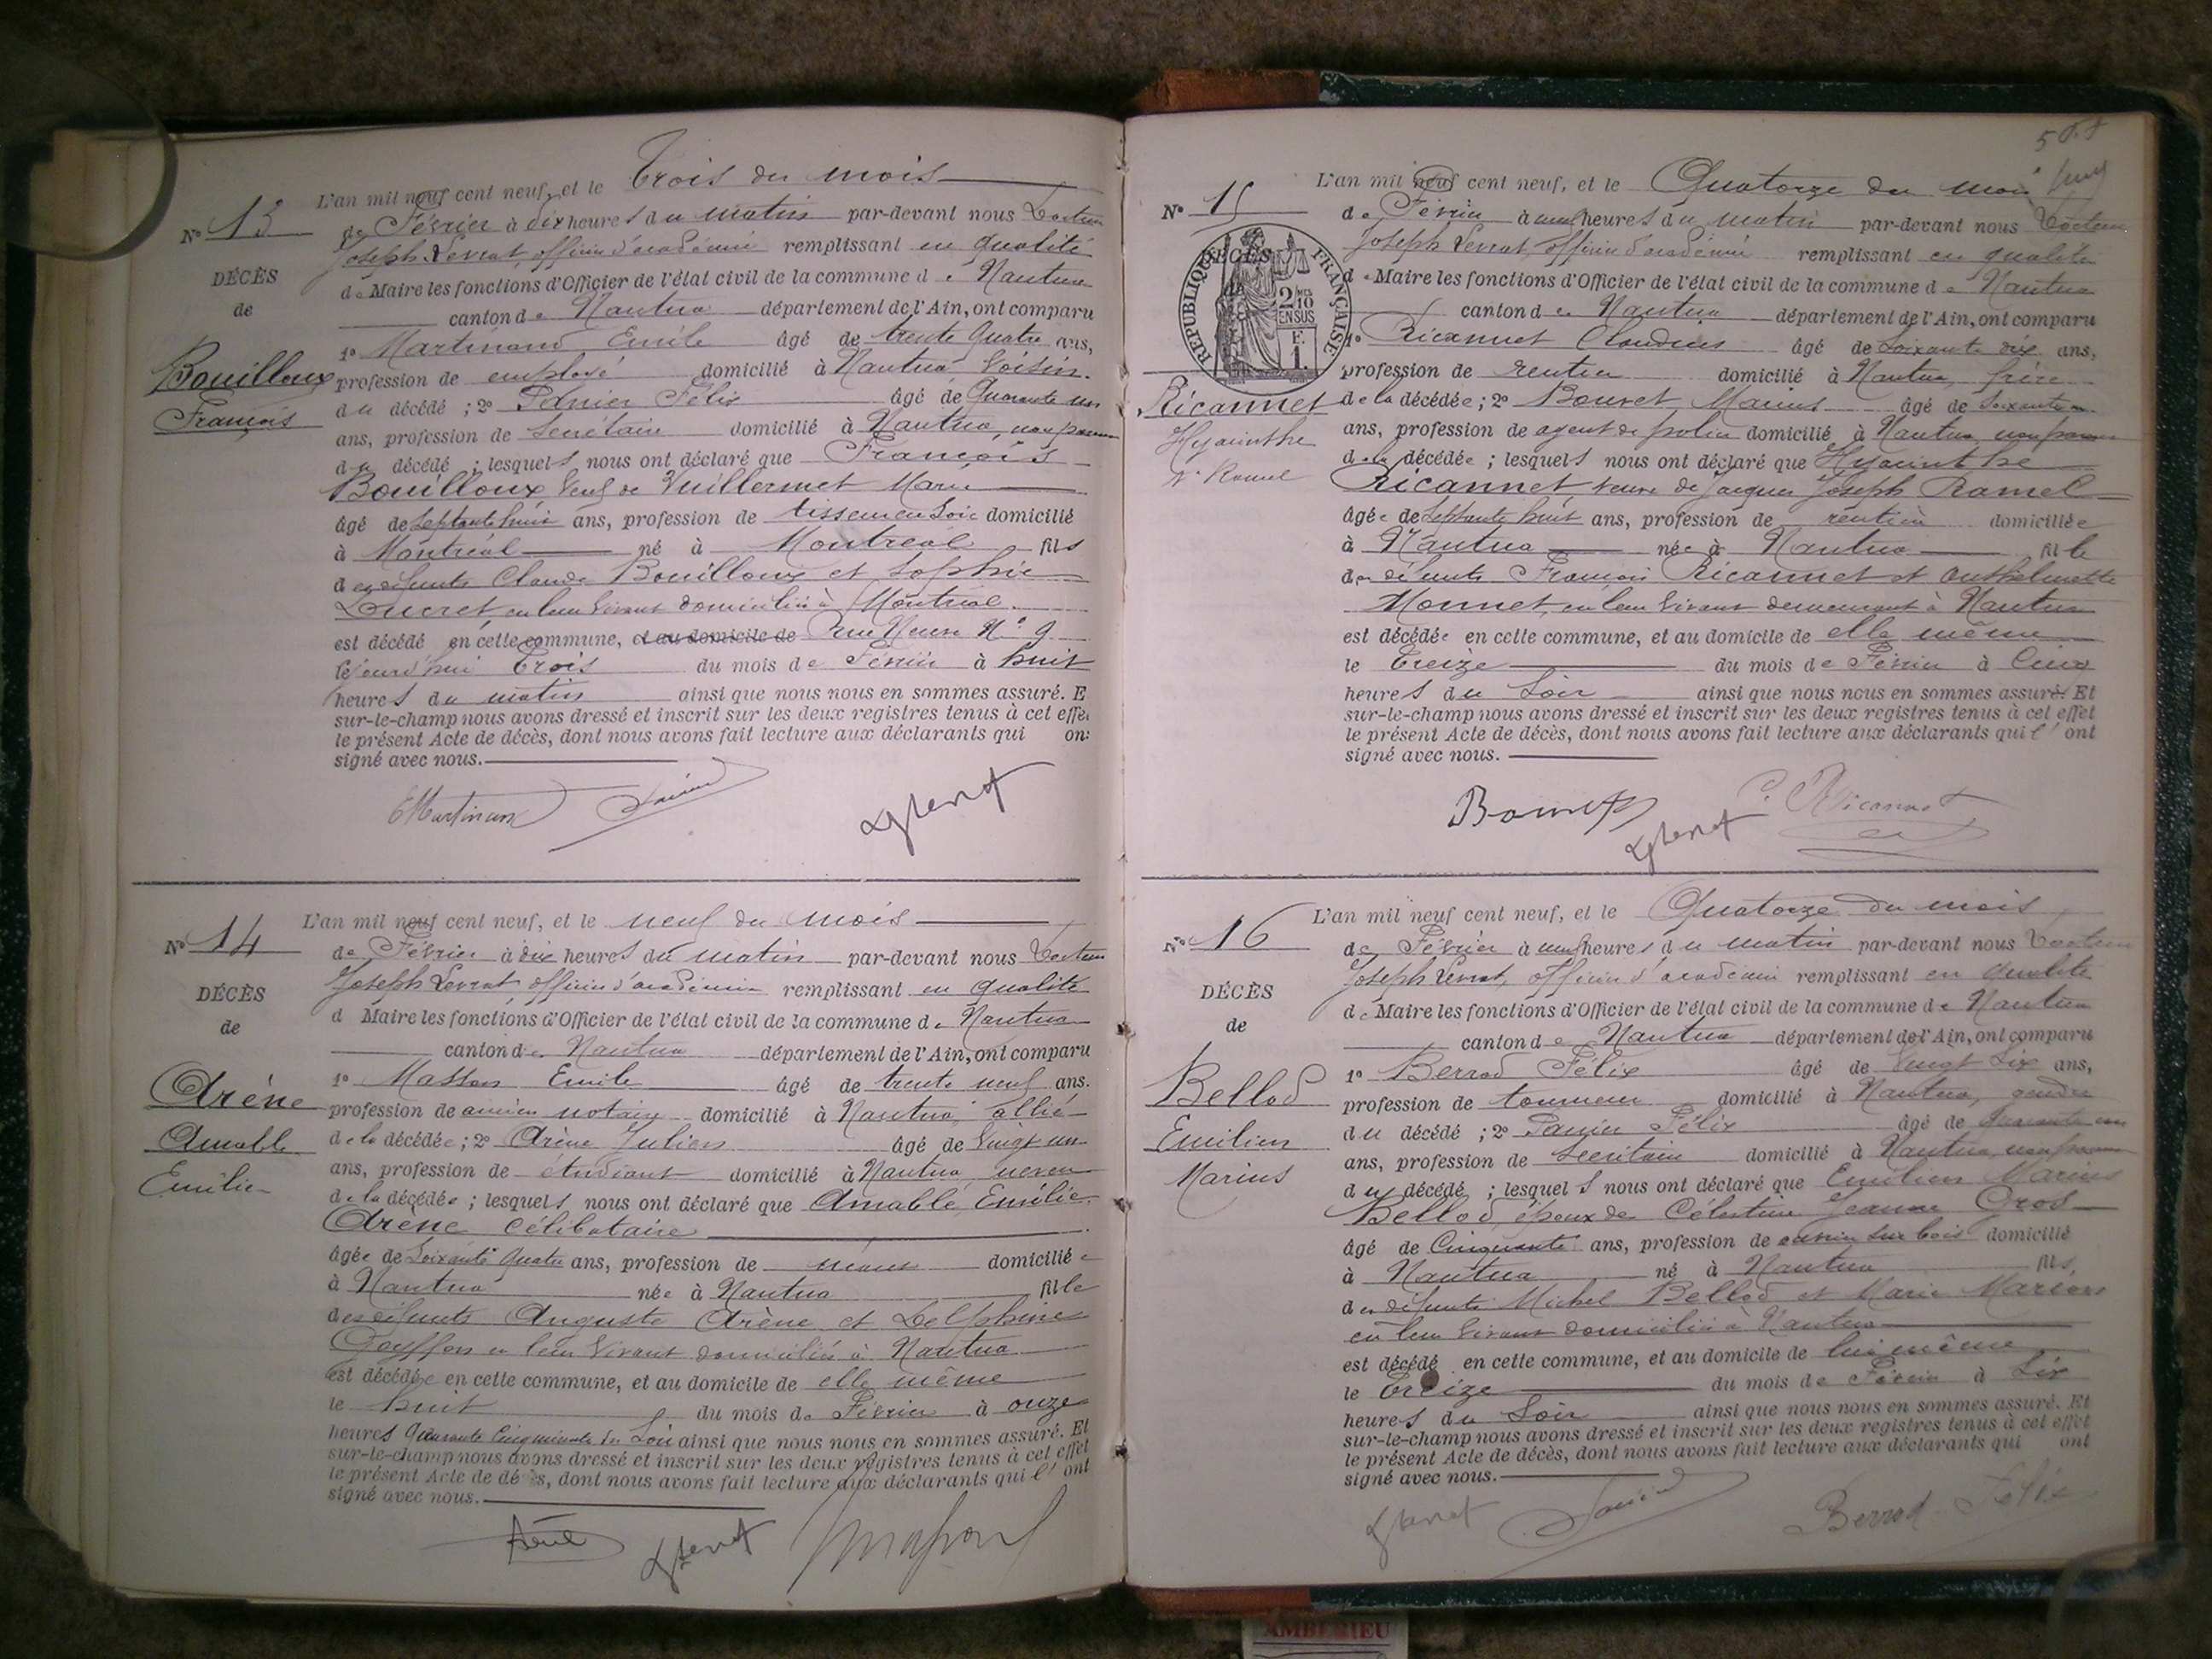 L'an mil neuf cent neuf, et le Trois du mois
N° 13
de Février à dix heures du matin par-devant nous Docteur
Joseph Levrat, officier d'académie remplissant en qualité
DÉCÈS
de Maire les fonctions d'Officier de l'état civil de la commune de Nantua
de
canton de Nantua département de l'Ain, ont comparu
1° Martinand Emile âgé de trente quatre ans,
Bouilloux
profession de employé domicilié à Nantua voisin
François
du décédé ; 2° Panier Félix âgé de Quarante un
ans, profession de Secrétaire domicilié à Nantua, non parent
du décédé ; lesquels nous ont déclaré que François
Bouilloux veuf de Vuillermet Marie
âgé de septante huit ans, profession de tisseur en soie domicilié
à Montréal né à Montréal fils
des défunts Claude Bouilloux et Sophie
Ducret, en leur vivant domiciliés à Montréal
est décédé en cette commune, et au domicile de Rue Neuve N° 9
le jourd'hui Trois du mois de Février à huit
heures du matin ainsi que nous nous en sommes assuré. E
sur-le-champ nous avons dressé et inscrit sur les deux registres tenus à cet effe
le présent Acte de décès, dont nous avons fait lecture aux déclarants qui on
signé avec nous.
EMartinand
L'an mil neuf cent neuf, et le neuf du mois
N° 14
de Février à dix heures du matin par-devant nous Docteur
Joseph Levrat, officier d'académie remplissant en qualité
DÉCÈS
d Maire les fonctions d'Officier de l'état civil de la commune de Nantua
de
canton de Nantua département de l'Ain, ont comparu
1° Masson Emile âgé de trente neuf ans.
Arène
profession de ancien notaire domicilié à Nantua, allié
Amable
de la décédée ; 2° Arène Julien âgé de Vingt un
ans, profession de étudiant domicilié à Nantua, neveu
Emilie
de la décédée ; lesquels nous ont déclaré que Amable, Emilie
Arène célibataire
âgée de Soixante quatre ans, profession de domiciliée
à Nantua née à Nantua fille
des défunts Auguste Arène et Delphine
Gouffon en leur vivant domiciliés à Nantua
est décédée en cette commune, et au domicile de elle même
le huit du mois de Février à onze
heures quarante cinq minutes du Soir ainsi que nous nous en sommes assuré. Et
sur-le-champ nous avons dressé et inscrit sur les deux registres tenus à cet effet
le présent Acte de décès, dont nous avons fait lecture aux déclarants qui l'ont
signé avec nous.
L'an mil neuf cent neuf, et le Quatorze du mois
N° 15
de Février à neuf heures du matin par-devant nous Docteur
Joseph Levrat, officier d'académie remplissant en qualité
RÉPUBLIQUE FRANÇAISE
2/10 EN SUS
F. 1.
de Maire les fonctions d'Officier de l'état civil de la commune de Nantua
canton de Nantua département de l'Ain, ont comparu
1° Ricannet Claudius âgé de Soixante dix ans,
profession de rentier domicilié à Nantua, frère
Ricannet
de la décédée ; 2° Bouvet Marius âgé de soixante un
Hyacinthe
ans, profession de agent de police domicilié à Nantua non parent
de la décédée ; lesquels nous ont déclaré que Hyacinthe
Vve Ramel
Ricannet, veuve de Jacques Joseph Ramel
âgée de Septante huit ans, profession de rentière domiciliée
à Nantua née à Nantua fille
des défunts François Ricannet et Anthelmette
Monnet, en leur vivant demeurant à Nantua
est décédée en cette commune, et au domicile de elle même
le Treize du mois de Février à Cinq
heures du Soir ainsi que nous nous en sommes assuré. Et
sur-le-champ nous avons dressé et inscrit sur les deux registres tenus à cet effet
le présent Acte de décès, dont nous avons fait lecture aux déclarants qui l'ont
signé avec nous.
C. Ricannet
L'an mil neuf cent neuf, et le Quatorze du mois
N° 16
de Février à neuf heures du matin par-devant nous Docteur
Joseph Levrat, officier d'académie remplissant en qualité
DÉCÈS
de Maire les fonctions d'Officier de l'état civil de la commune de Nantua
de
canton de Nantua département de l'Ain, ont comparu
1° Berrod Félix âgé de Vingt six ans,
Bellod
profession de tourneur domicilié à Nantua, gendre
Emilien
du décédé ; 2° Panier Félix âgé de Quarante un
ans, profession de Secrétaire domicilié à Nantua, non parent
Marius
du décédé ; lesquels nous ont déclaré que Emilien Marius
Bellod, époux de Célestine Jeanne Gros
âgé de Cinquante ans, profession de domicilié
à Nantua né à Nantua fils
des défunts Michel Bellod et Marie Marion
en leur vivant domiciliés à Nantua
est décédé en cette commune, et au domicile de lui même
le Treize du mois de Février à Six
heures du Soir ainsi que nous nous en sommes assuré. Et
sur-le-champ nous avons dressé et inscrit sur les deux registres tenus à cet effet
le présent Acte de décès, dont nous avons fait lecture aux déclarants qui ont
signé avec nous.
Berrod Félix
AMBERIEU